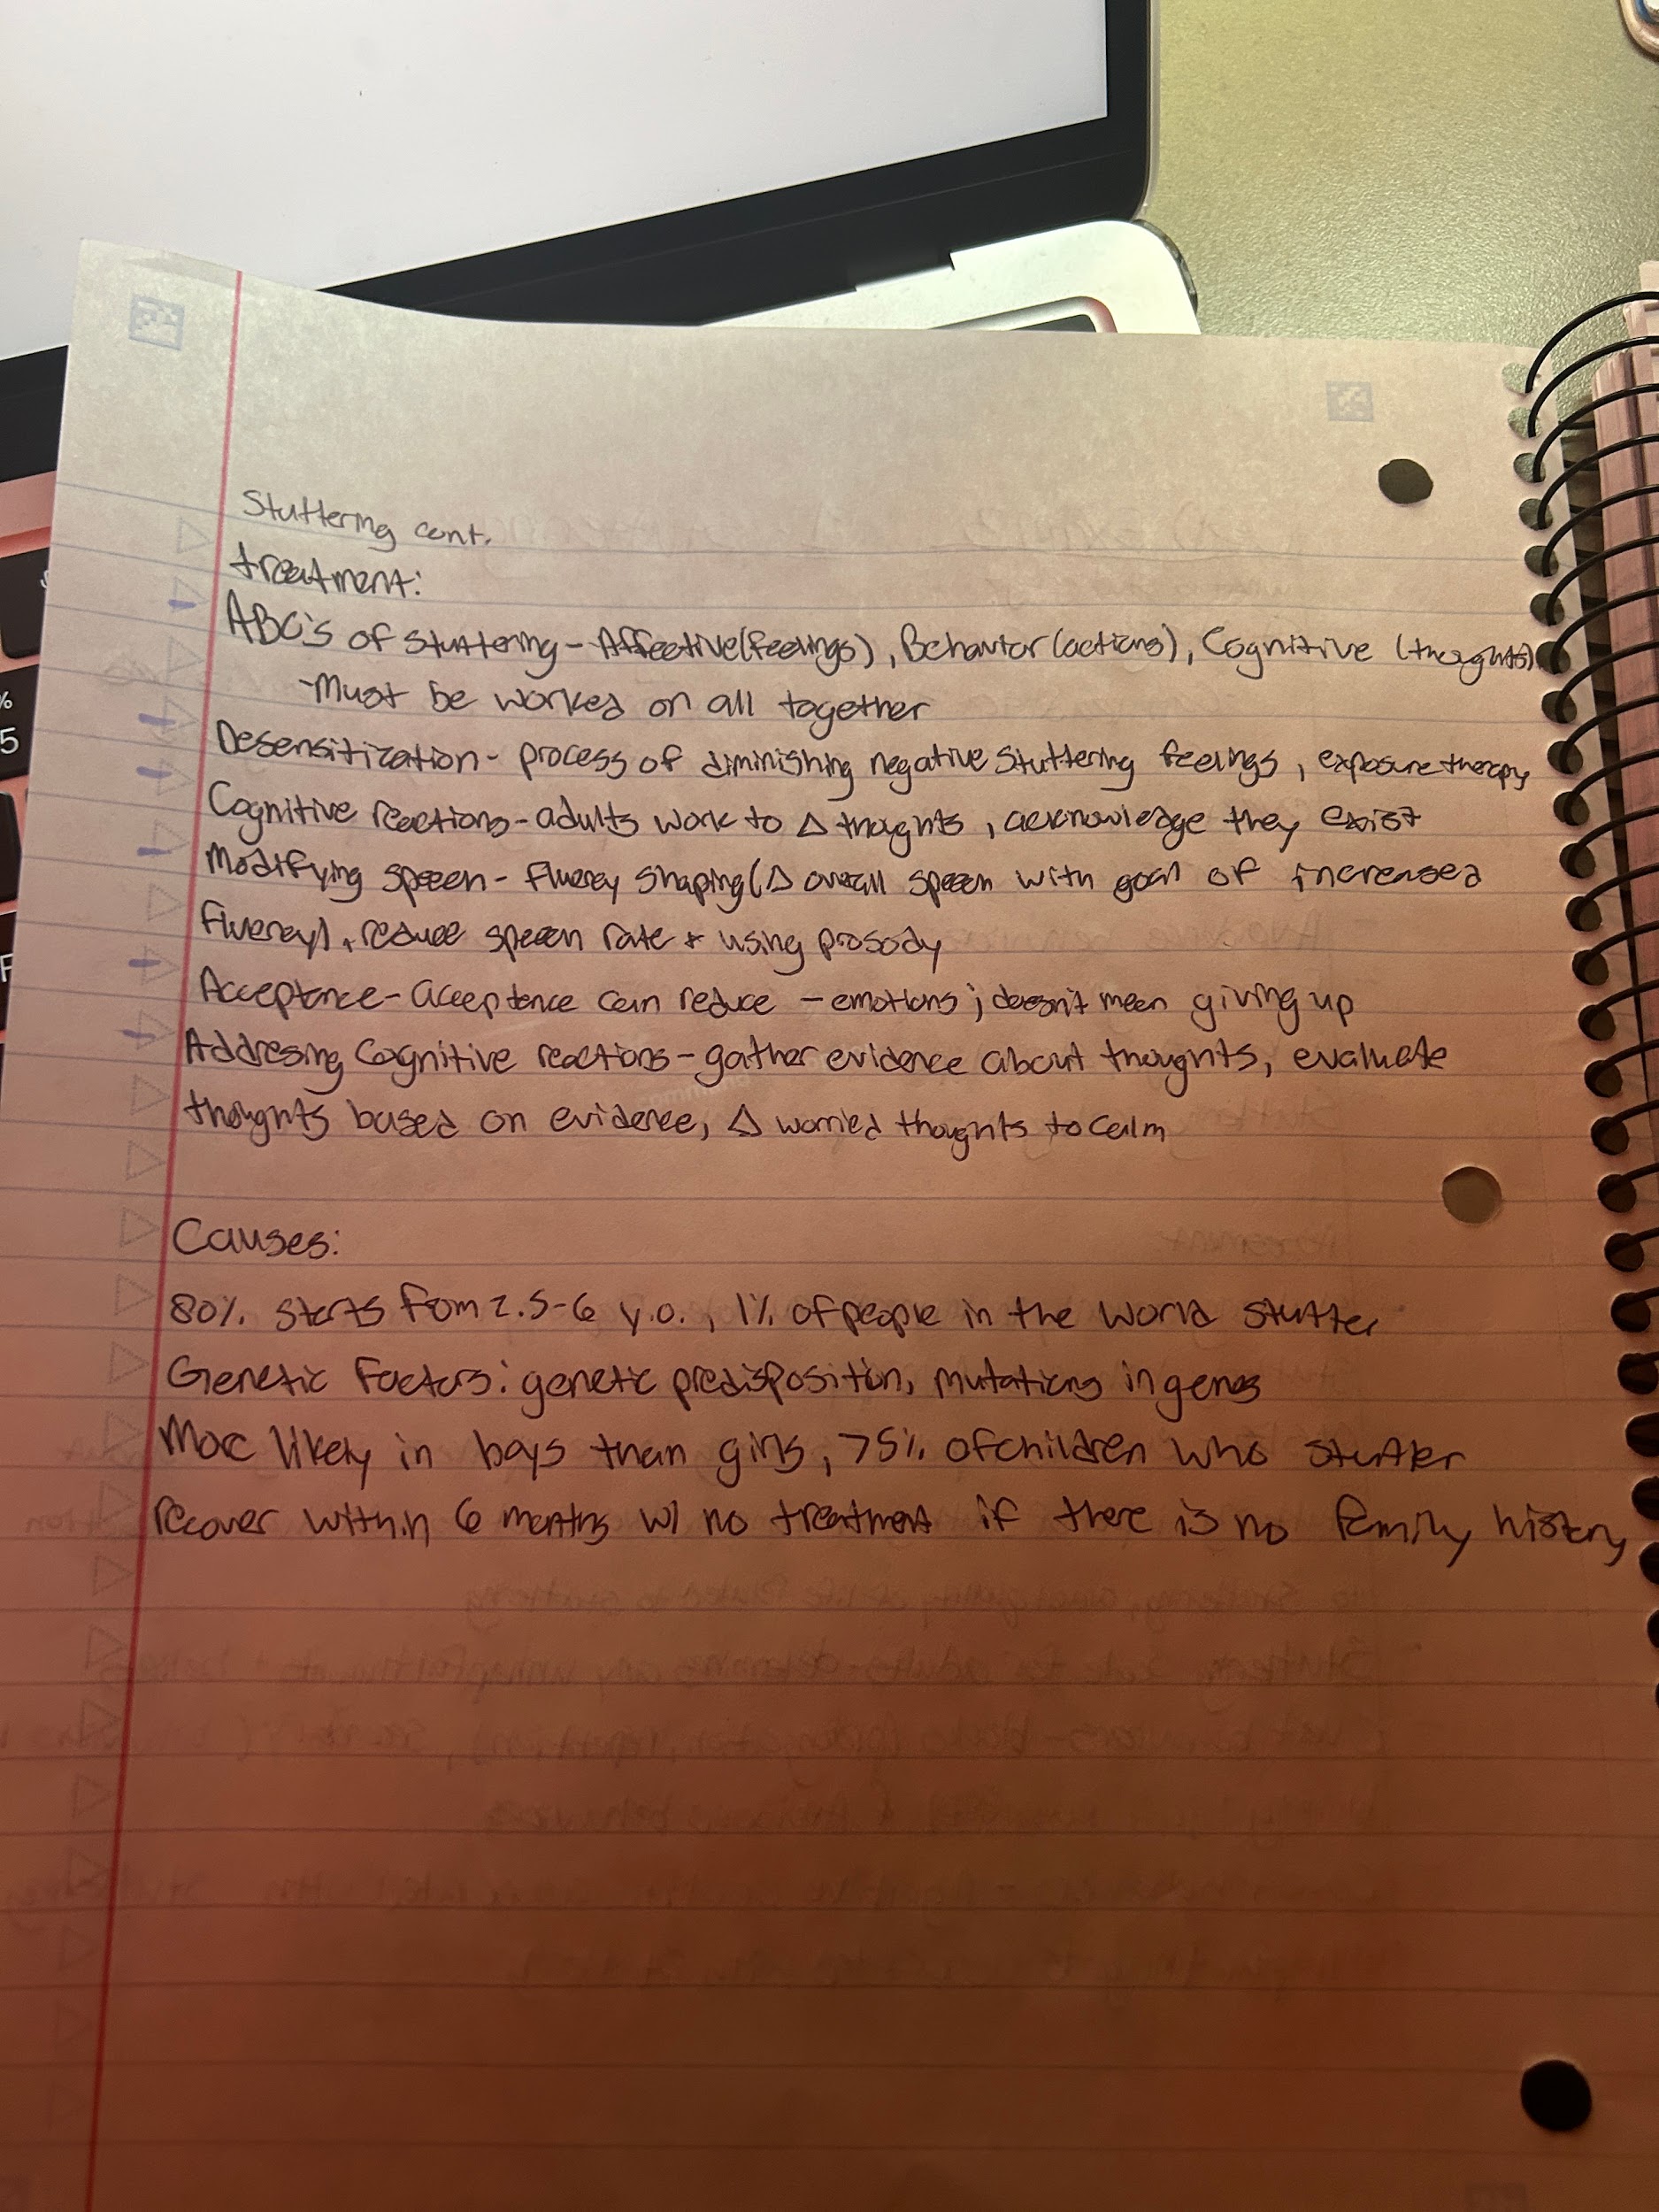 Stuttering cont.
treatment:
ABC's of stuttering - Affective (feelings), Behavior (actions), Cognitive (thoughts)
- Must be worked on all together
Desensitization - process of diminishing negative stuttering feelings, exposure therapy
Cognitive reactions - adults work to Δ thoughts, acknowledge they exist
Modifying speech - fluency shaping (Δ overall speech with goal of increased
fluency), reduce speech rate + using prosody
Acceptance - acceptence can reduce - emotions; doesn't mean giving up
Addresing Cognitive reactions - gather evidence about thoughts, evaluate
thoughts based on evidence, Δ worried thoughts to calm
Causes:
80% starts from 2.5-6 y.o., 1% of people in the world stutter
Genetic Factors: genetic predisposition, mutations in genes
More likely in boys than girls, 75% of children who stutter
recover within 6 months w/ no treatment if there is no family history
%
5
F